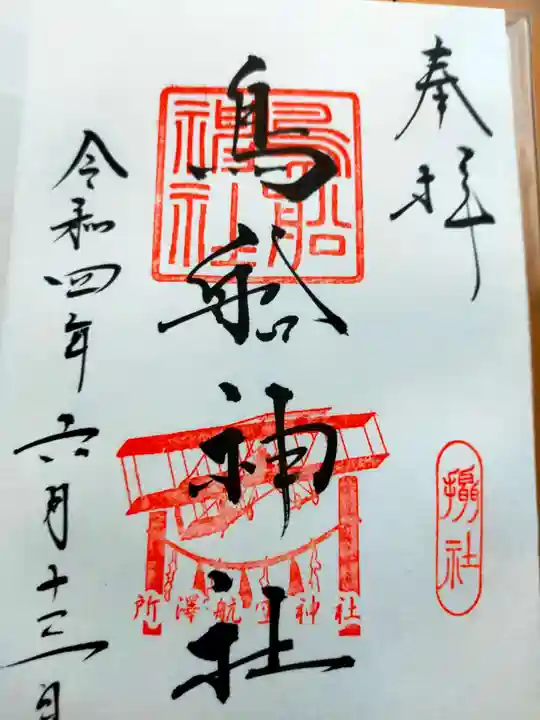 奉拝
摂社
鳥船神社
鳥船神社
所澤航空神社
令和四年六月十三日